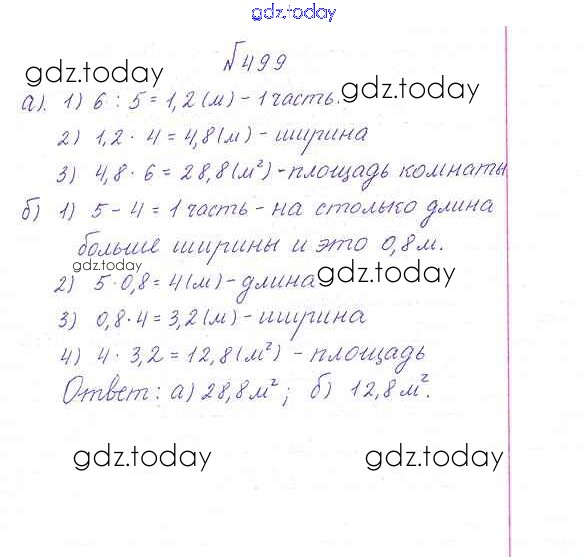 gdz.today
№499
gdz.today
а). 1) 6 : 5 = 1,2 (м) - 1 часть.
2) 1,2 · 4 = 4,8 (м) - ширина
3) 4,8 · 6 = 28,8 (м²) - площадь комнаты
б) 1) 5 - 4 = 1 часть - на столько длина
больше ширины и это 0,8 м.
gdz.today
gdz.today
2) 5 · 0,8 = 4 (м) - длина
3) 0,8 · 4 = 3,2 (м) - ширина
4) 4 · 3,2 = 12,8 (м²) - площадь
Ответ: а) 28,8 м²; б) 12,8 м².
gdz.today gdz.today